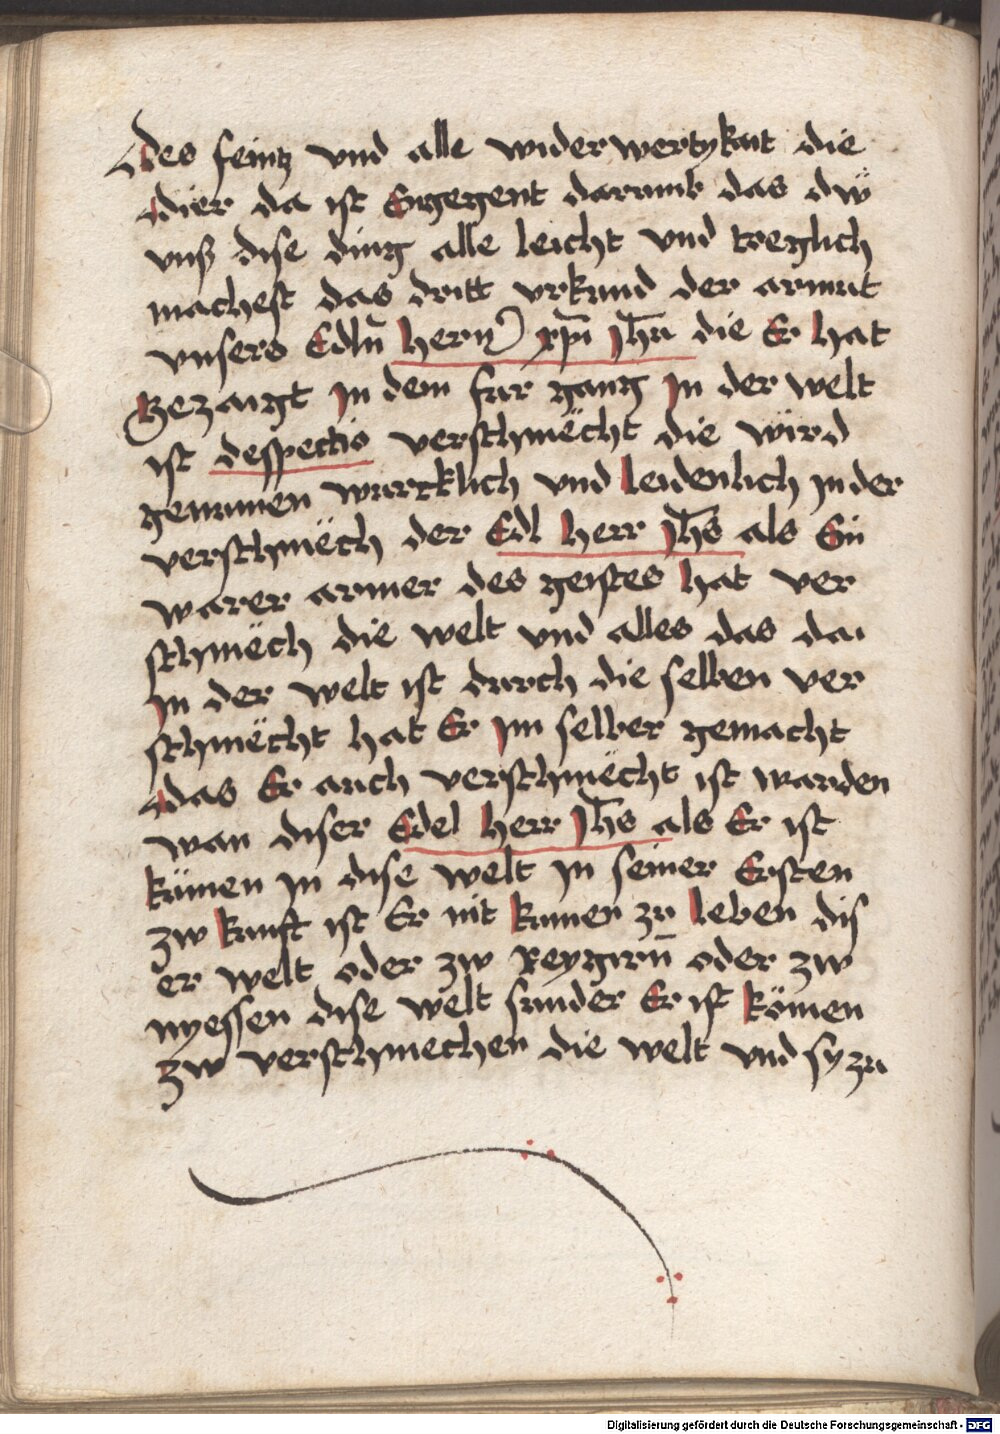 des feintz vnd alle widerwertykait die
dier da ist Engegent darumb das dẅ
vnß dise ding alle leicht vnd treglich
machest das dritt vrkund der armut
vnsers Edln̄ hern xp̄i Jh̄u die Er hat
Bezaigt Jn dem fur gang Jn der welt
ist despectio verschmëcht die wird
genumen wurcklich vnd leidenlich Jn der
verschmëch der Edl herr Jh̄s als Ein
warer armer des geistes hat ver
schmëch die welt vnd alles das da
Jn der welt ist durch die selben ver
schmëcht hat Er Jm selber gemacht
das Er auch verschmëcht ist warden
wan diser Edel herr Jh̄s als Er ist
kümen Jn dise welt Jn seiner Ersten
zw kunft ist Er nit kumen zu leben dis
er welt oder zw Reygirn̄ oder zw
nyessen dise welt sunder Er ist kömen
zw verschmechen die welt vnd sy zu
Digitalisierung gefördert durch die Deutsche Forschungsgemeinschaft - DFG